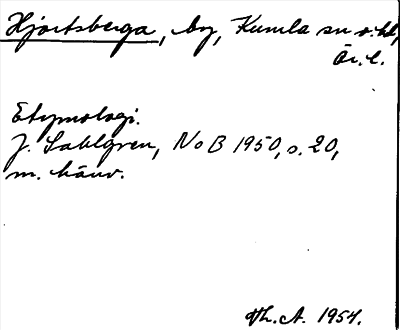 Hjortsberga, by, Kumla sn o. hd,
Ör. l.
Etymologi.
J. Sahlgren, NoB 1950, s. 20,
m. hänv.
Th. A. 1954.